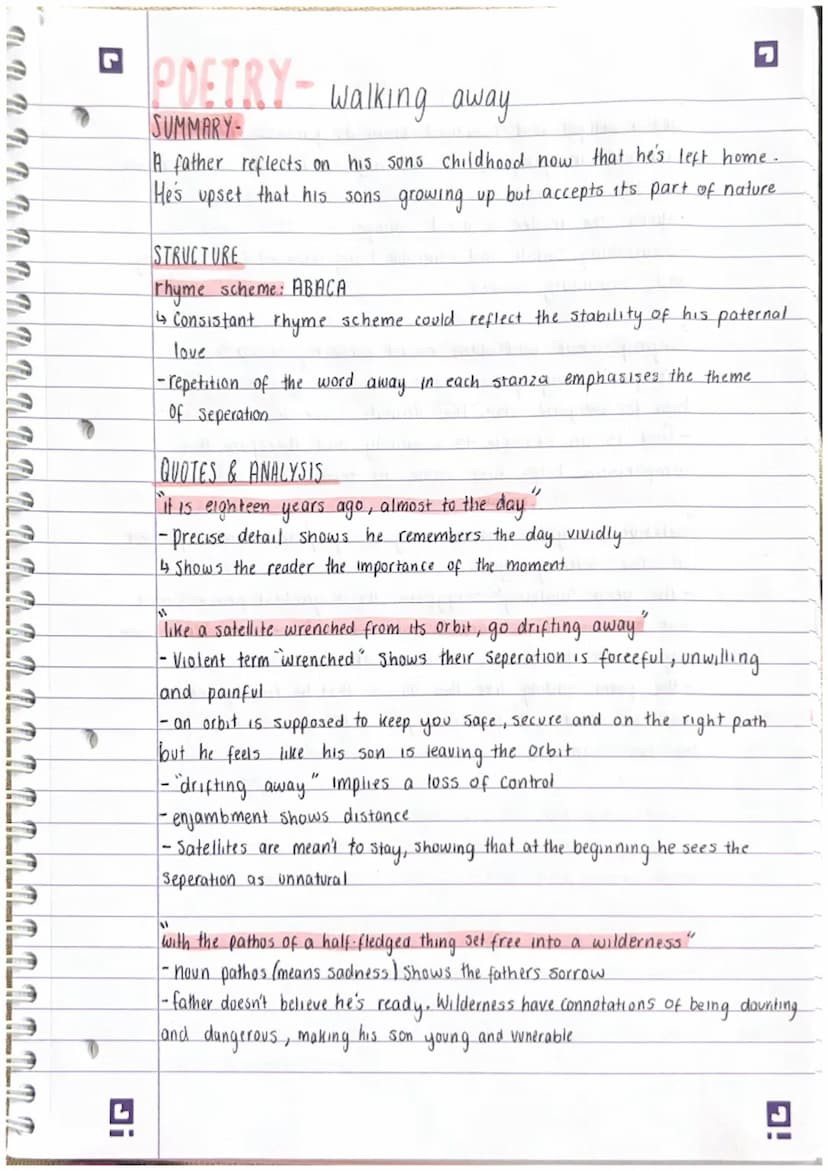 POETRY- Walking away
SUMMARY-
A father reflects on his sons childhood now that he's left home.
He's upset that his sons growing up but accepts its part of nature
STRUCTURE
rhyme scheme: ABACA
↳ Consistant rhyme scheme could reflect the stability of his paternal
love
- repetition of the word away in each stanza emphasises the theme
Of seperation
QUOTES & ANALYSIS
"it is eighteen years ago, almost to the day"
- precise detail shows he remembers the day vividly
↳ Shows the reader the importance of the moment
"like a satellite wrenched from its orbit, go drifting away"
- Violent term "wrenched" shows their seperation is forceful, unwilling
and painful
- an orbit is supposed to keep you safe, secure and on the right path
but he feels like his son is leaving the orbit
- "drifting away" implies a loss of control
- enjambment shows distance
- Satellites are mean't to stay, showing that at the beginning he sees the
seperation as unnatural
"with the pathos of a half-fledged thing set free into a wilderness"
- noun pathos (means sadness) shows the fathers sorrow
- father doesn't believe he's ready. Wilderness have connotations of being daunting
and dangerous, making his son young and vunerable